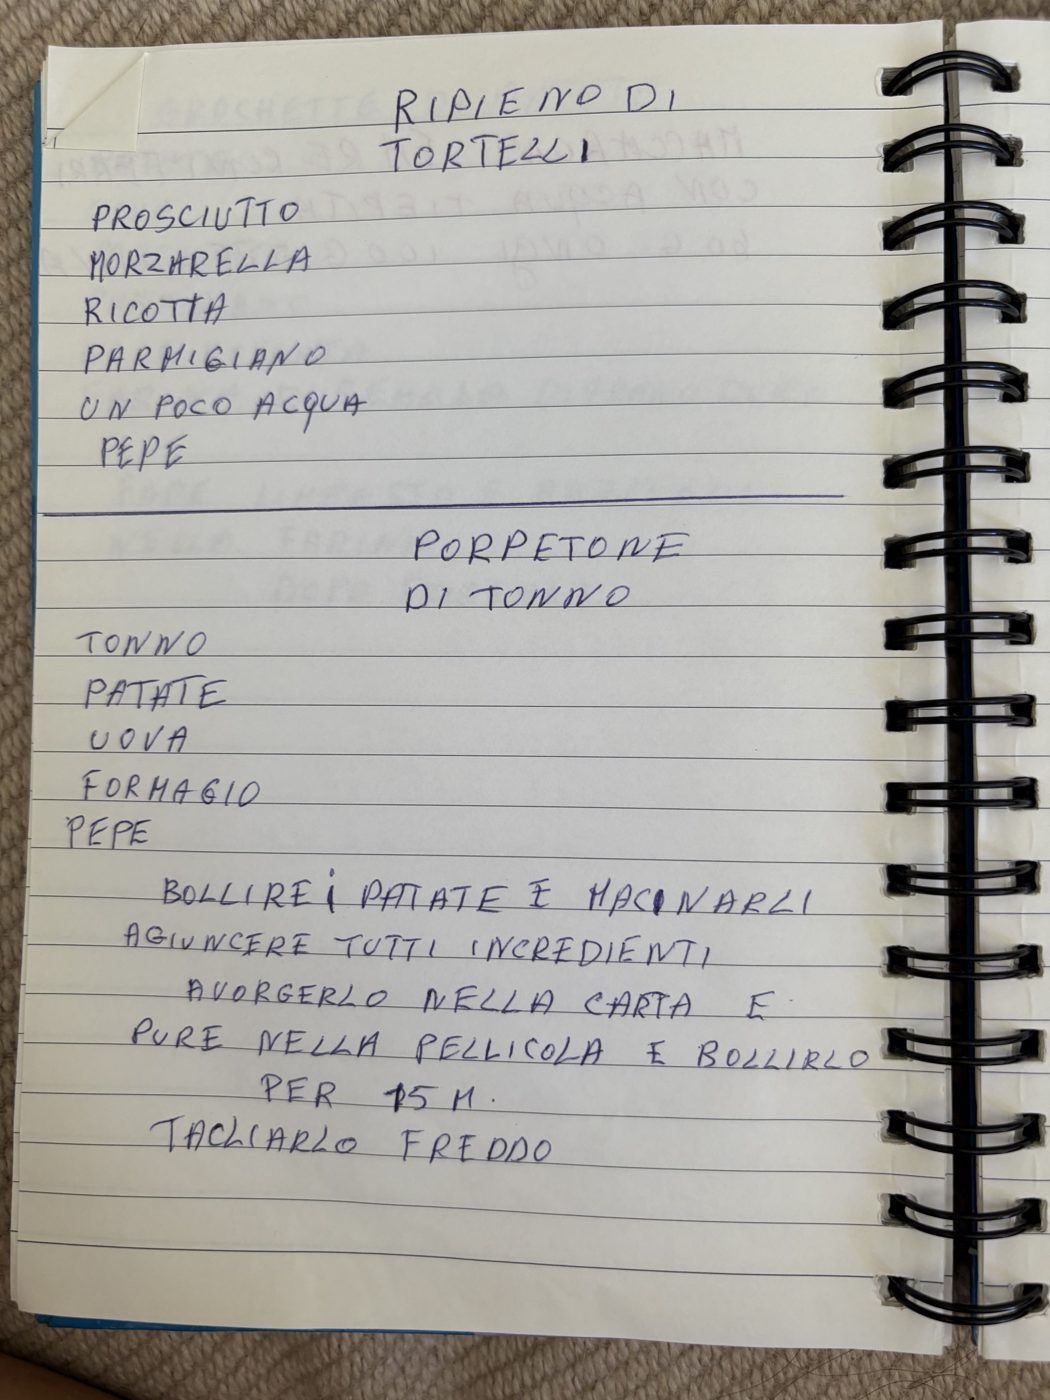 RIPIENO DI
TORTELLI
PROSCIUTTO
MORZARELLA
RICOTTA
PARMIGIANO
UN POCO ACQUA
PEPE
PORPETONE
DI TONNO
TONNO
PATATE
UOVA
FORMAGIO
PEPE
BOLLIRE i PATATE E MACINARLI
AGIUNCERE TUTTI INCREDIENTI
AVORGERLO NELLA CARTA E
PURE NELLA PELLICOLA E BOLLIRLO
PER 15 M.
TACLIARLO FREDDO